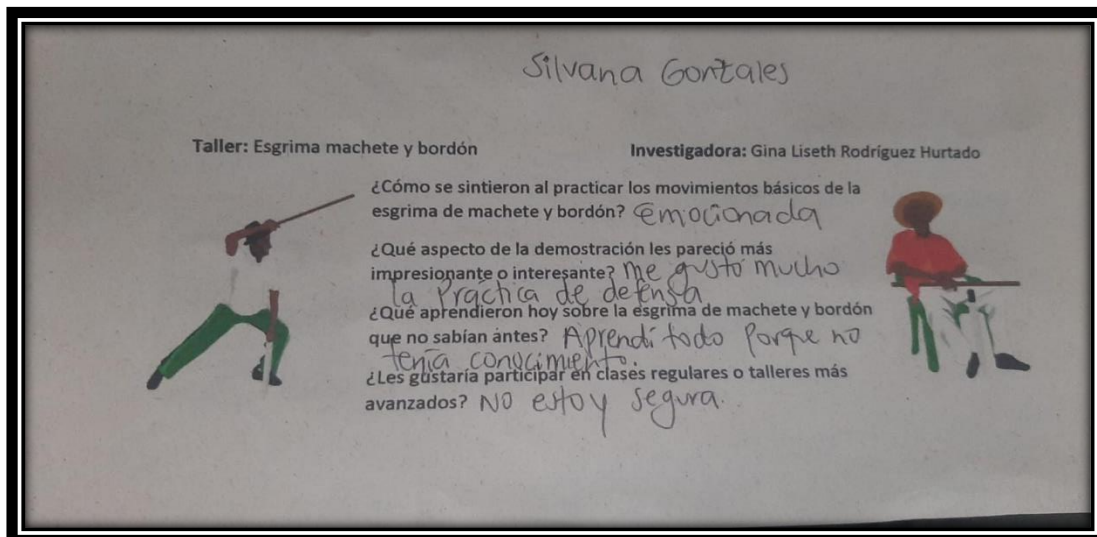 Silvana Gonzales
Taller: Esgrima machete y bordón Investigadora: Gina Liseth Rodríguez Hurtado
¿Cómo se sintieron al practicar los movimientos básicos de la
esgrima de machete y bordón? emocionada
¿Qué aspecto de la demostración les pareció más
impresionante o interesante? me gusto mucho
la práctica de defensa
¿Qué aprendieron hoy sobre la esgrima de machete y bordón
que no sabían antes? Aprendí todo porque no
tenía conocimiento.
¿Les gustaría participar en clases regulares o talleres más
avanzados? No estoy segura.